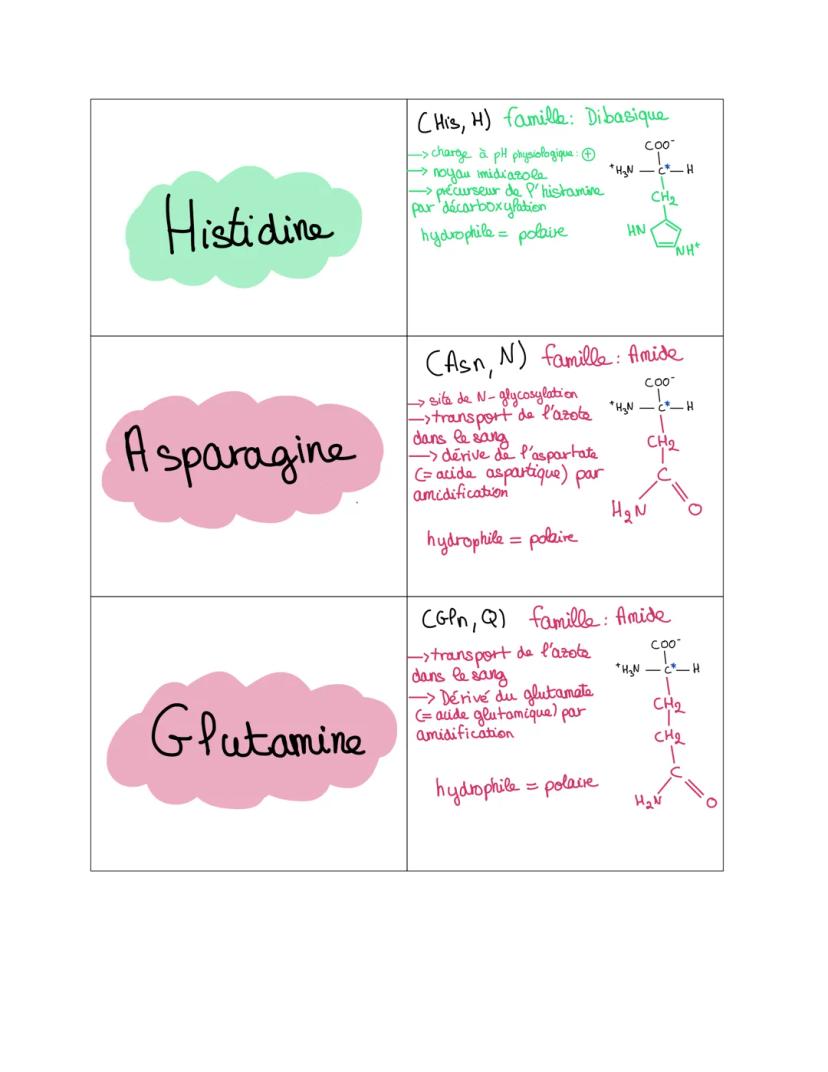 Histidine
(His, H) famille: Dibasique
→ charge à pH physiologique: ⊕
→ noyau imidiazole
→ précurseur de l'histamine
par décarboxylation
hydrophile = polaire
COO⁻
⁺H₃N — C* — H
CH₂
HN
NH⁺
Asparagine
(Asn, N) famille: Amide
→ site de N-glycosylation
→ transport de l'azote
dans le sang
→ dérive de l'aspartate
(= acide aspartique) par
amidification
hydrophile = polaire
COO⁻
⁺H₃N — C* — H
CH₂
C
H₂N O
Glutamine
(Gln, Q) famille: Amide
→ transport de l'azote
dans le sang
→ Dérivé du glutamate
(= acide glutamique) par
amidification
hydrophile = polaire
COO⁻
⁺H₃N — C* — H
CH₂
CH₂
C
H₂N O